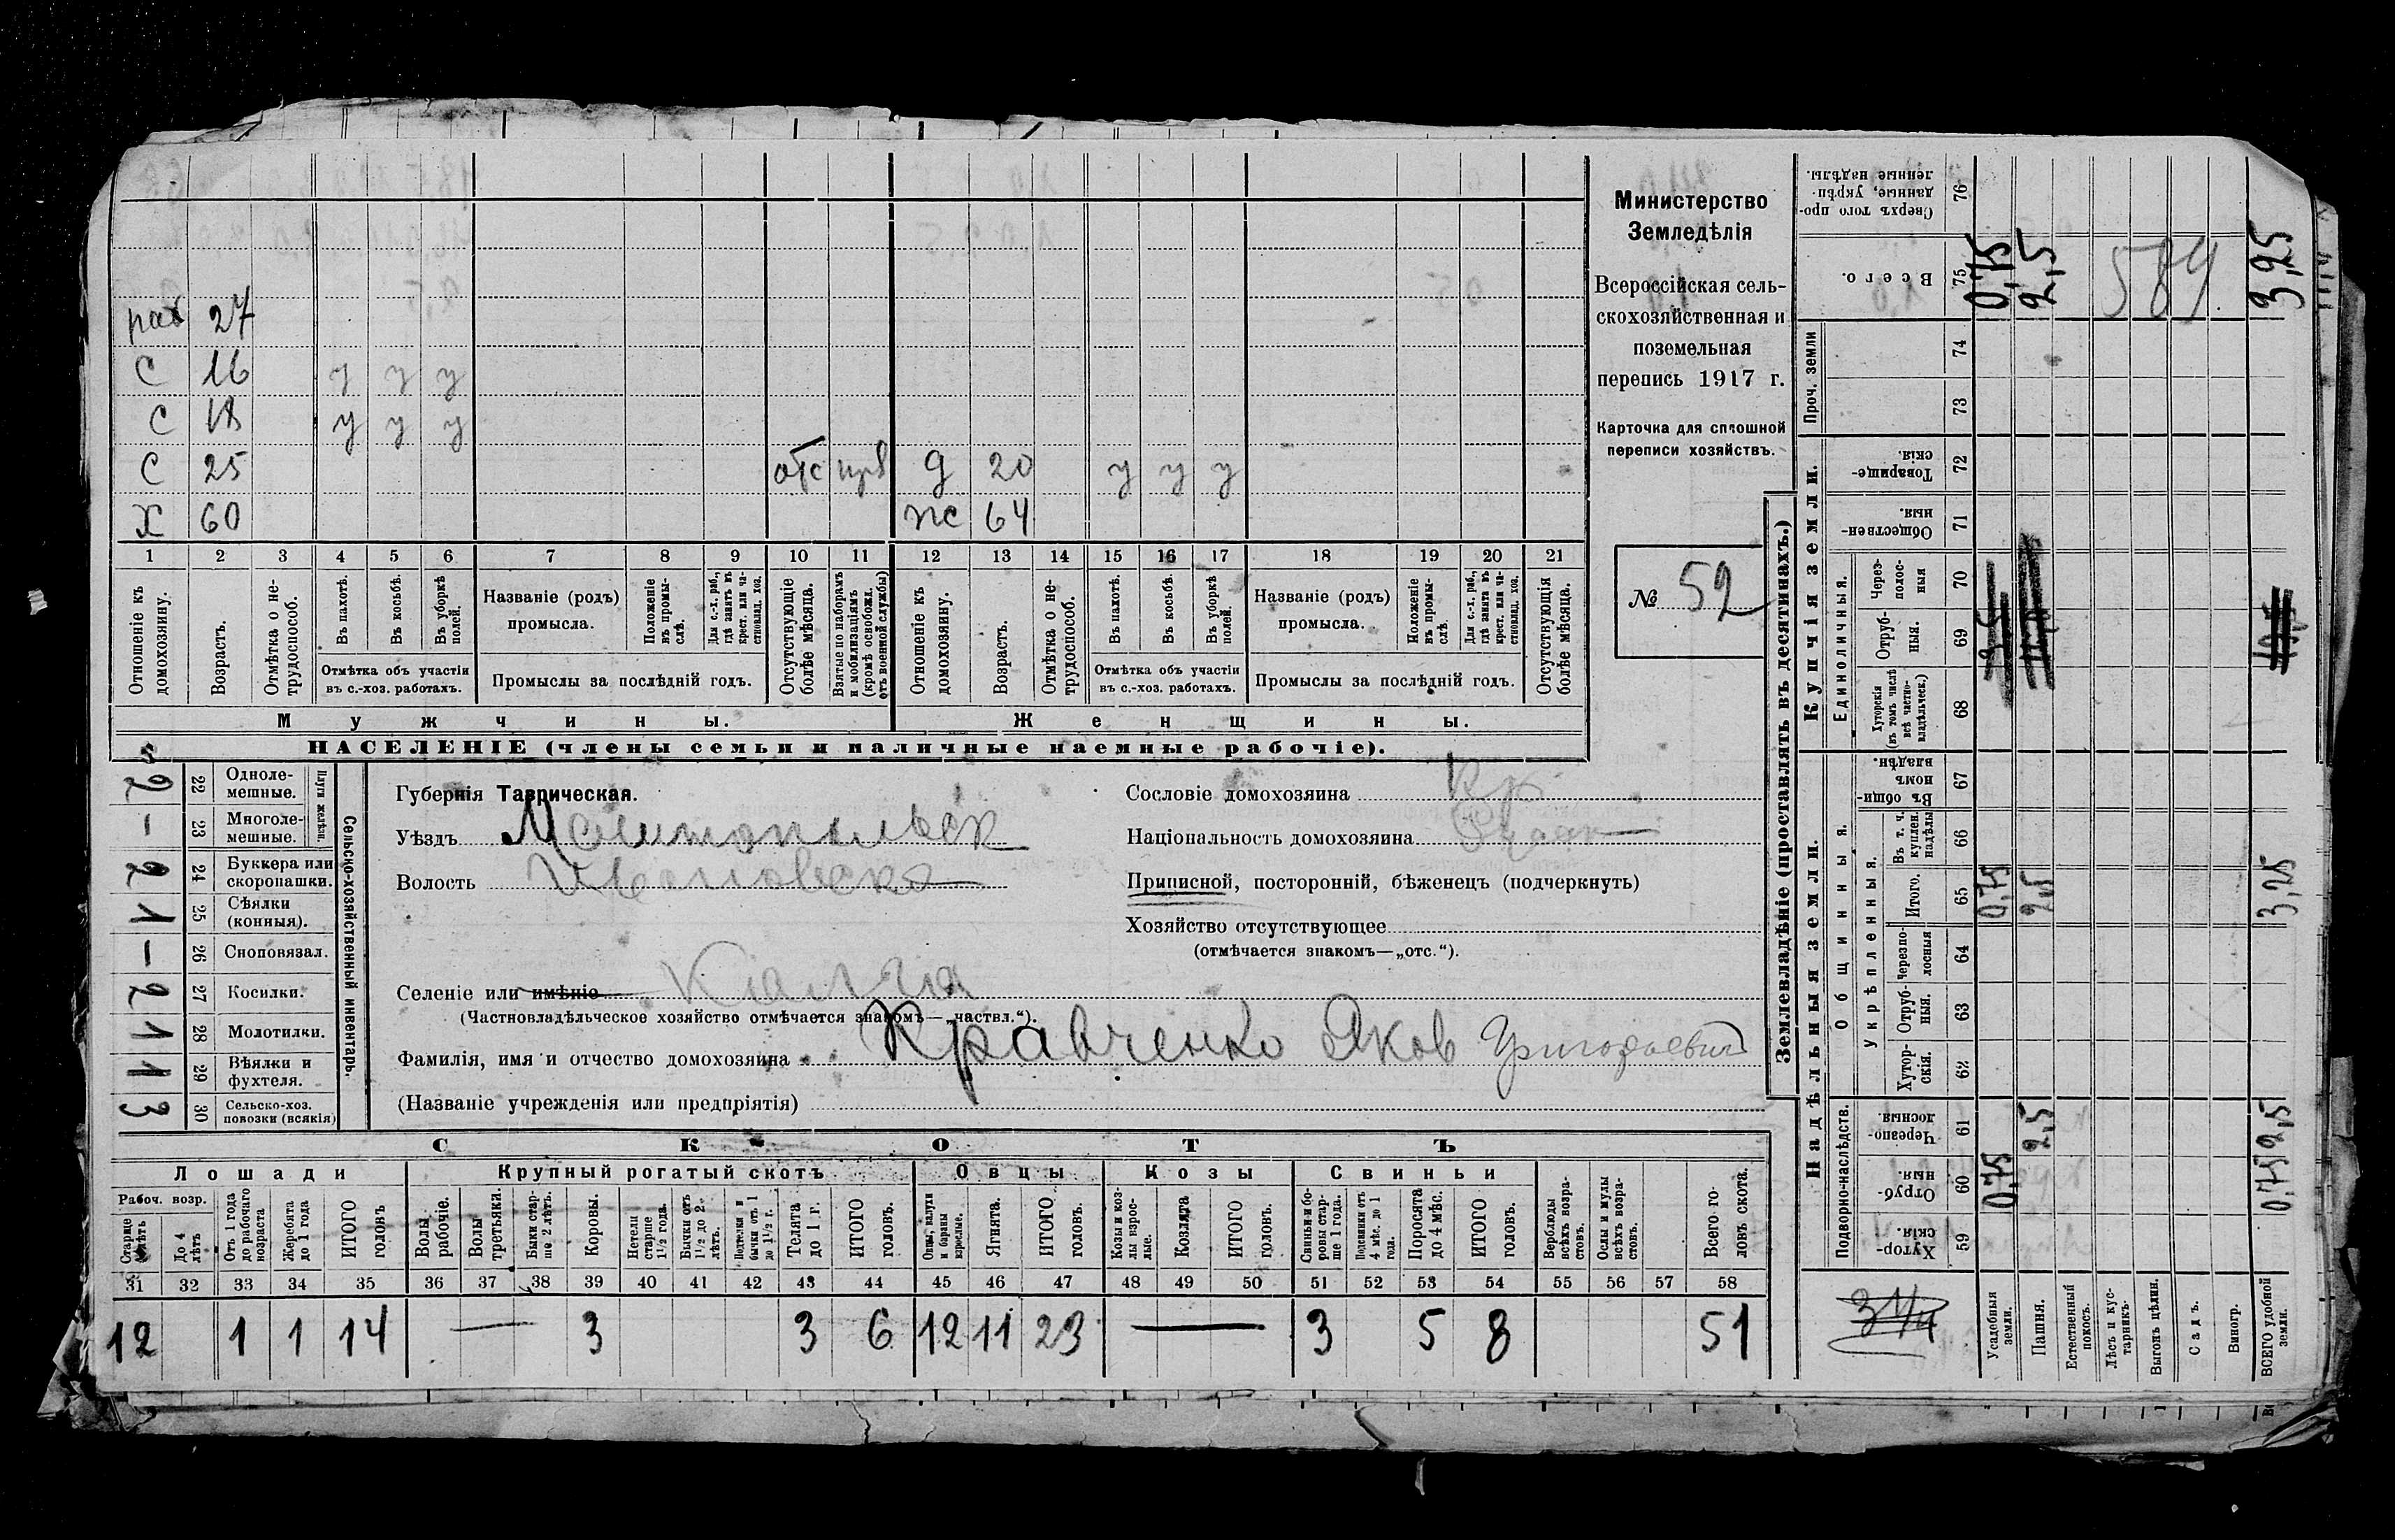 раб 27
С 16 у у у
С 18 у у у
С 25 отс прв д 20 у у у
Х 60 ж 64
1 2 3 4 5 6 7 8 9 10 11 12 13 14 15 16 17 18 19 20 21
Отношеніе къ домохозяину.
Возрастъ.
Отмѣтка о нетрудоспособ.
Въ пахотѣ.
Въ косьбѣ.
Въ уборкѣ полей.
Отмѣтка объ участіи въ с.-хоз. работахъ.
Названіе (родъ) промысла.
Положеніе въ промыслѣ.
Для с.-х. раб., гдѣ занятъ въ крест. или частновлад. хоз.
Промыслы за послѣдній годъ.
Отсутствующіе болѣе мѣсяца.
Взятые по наборамъ и мобилизаціямъ (кромѣ освобожд. отъ военной службы)
Отношеніе къ домохозяину.
Возрастъ.
Отмѣтка о нетрудоспособ.
Въ пахотѣ.
Въ косьбѣ.
Въ уборкѣ полей.
Отмѣтка объ участіи въ с.-хоз. работахъ.
Названіе (родъ) промысла.
Положеніе въ промыслѣ.
Для с.-х. раб., гдѣ занята въ крест. или частновлад. хоз.
Промыслы за послѣдній годъ.
Отсутствующія болѣе мѣсяца.
Мужчины. Женщины.
НАСЕЛЕНІЕ (члены семьи и наличные наемные рабочіе).
Министерство
Земледѣлія
Всероссійская сель-
скохозяйственная и
поземельная
перепись 1917 г.
Карточка для сплошной
переписи хозяйствъ.
№ 52
Сельско-хозяйственный инвентарь.
Плуги желѣзн.
2 22 Одноле-
мешные.
— 23 Многоле-
мешные.
2 24 Буккера или
скоропашки.
1 25 Сѣялки
(конныя).
— 26 Сноповязал.
2 27 Косилки.
1 28 Молотилки.
1 29 Вѣялки и
фухтеля.
3 30 Сельско-хоз.
повозки (всякія)
Губернія Таврическая.
Уѣздъ Мелитопольск
Волость Ивановская
Селеніе или имѣніе
(Частновладѣльческое хозяйство отмѣчается знакомъ—„частвл.“).
Фамилія, имя и отчество домохозяина Кравченко Яков Григорьевич
(Названіе учрежденія или предпріятія)
Сословіе домохозяина Кр
Національность домохозяина
Приписной, посторонній, бѣженецъ (подчеркнуть)
Хозяйство отсутствующее
(отмѣчается знакомъ—„отс.“).
СКОТЪ
Лошади Крупный рогатый скотъ Овцы Козы Свиньи
Рабоч. возр.
Старше 4 лѣтъ
До 4 лѣтъ
Отъ 1 года до рабочаго возраста
Жеребята до 1 года
ИТОГО головъ
Волы рабочіе.
Волы третьяки.
Быки старше 2 лѣтъ.
Коровы.
Нетели старше 1½ года.
Бычки отъ 1½ до 2 лѣтъ.
Подтелки и бычки отъ 1 до 1½ г.
Телята до 1 г.
ИТОГО головъ.
Овцы, валухи и бараны взрослые.
Ягнята.
ИТОГО головъ.
Козы и козлы взрослые.
Козлята
ИТОГО головъ.
Свиньи и боровы старше 1 года.
Подсвинки отъ 4 мѣс. до 1 года.
Поросята до 4 мѣс.
ИТОГО головъ.
Верблюды всѣхъ возрастовъ.
Ослы и мулы всѣхъ возрастовъ.
Всего головъ скота.
31 32 33 34 35 36 37 38 39 40 41 42 43 44 45 46 47 48 49 50 51 52 53 54 55 56 57 58
12 1 1 14 — 3 3 6 12 11 23 — 3 5 8 51
Землевладѣніе (проставлять въ десятинахъ.)
Надѣльныя земли. Купчія земли. Проч. земли
Подворно-наслѣдств.
Общинныя.
Укрѣпленныя.
Единоличныя.
Хуторскія. 59
Отрубныя. 60
Черезполосныя. 61
Хуторскія. 62
Отрубныя. 63
Черезполосныя 64
Итого. 65
Въ т. ч. куплен. надѣлы 66
Въ общинномъ владѣн. 67
Хуторскія (въ томъ числѣ всѣ частновладѣльческ.) 68
Отрубныя. 69
Черезполосныя 70
Общественныя. 71
Товарищескія. 72
73
74
Всего. 75
Сверхъ того проданные, укрѣпленные надѣлы. 76
Усадебныя земли. 0,75 0,75 0,75
Пашня. 2,5 2,5 2,5
Естественный покосъ.
Лѣсъ и кустарникъ.
Выгонъ цѣлин.
Садъ.
Виногр.
ВСЕГО удобной земли. 0,75 2,5 3,25 3,25
584